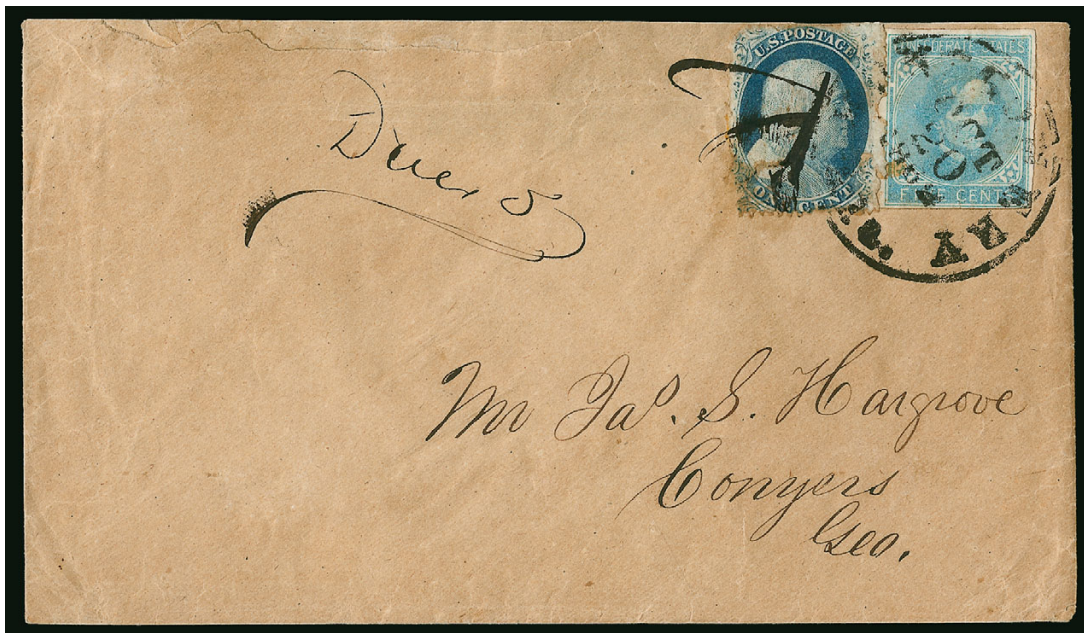 U.S. POSTAGE
ONE CENT
CONFEDERATE STATES
FIVE CENTS
OCT
20
Due 5
Mr Jas. S. Hargrove
Conyers
Geo.